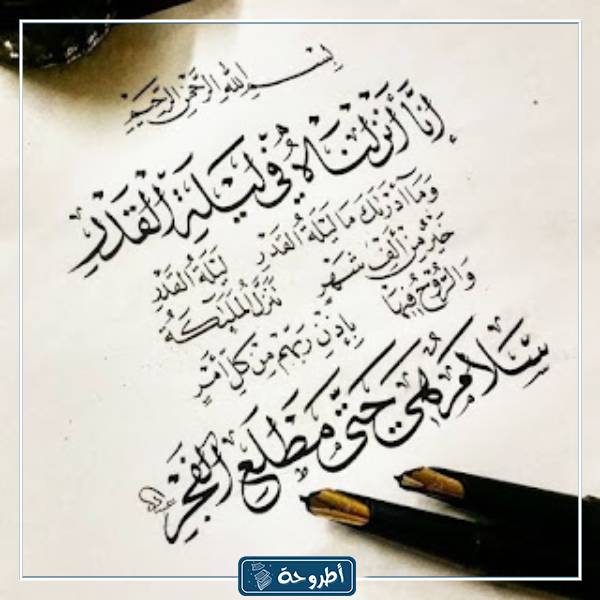 بسم الله الرحمن الرحيم
إنا أنزلناه في ليلة القدر
وما أدرىك ما ليلة القدر ليلة القدر
خير من ألف شهر تنزل الملئكة
والروح فيها بإذن ربهم من كل أمر
سلام هي حتى مطلع الفجر
أطروحة